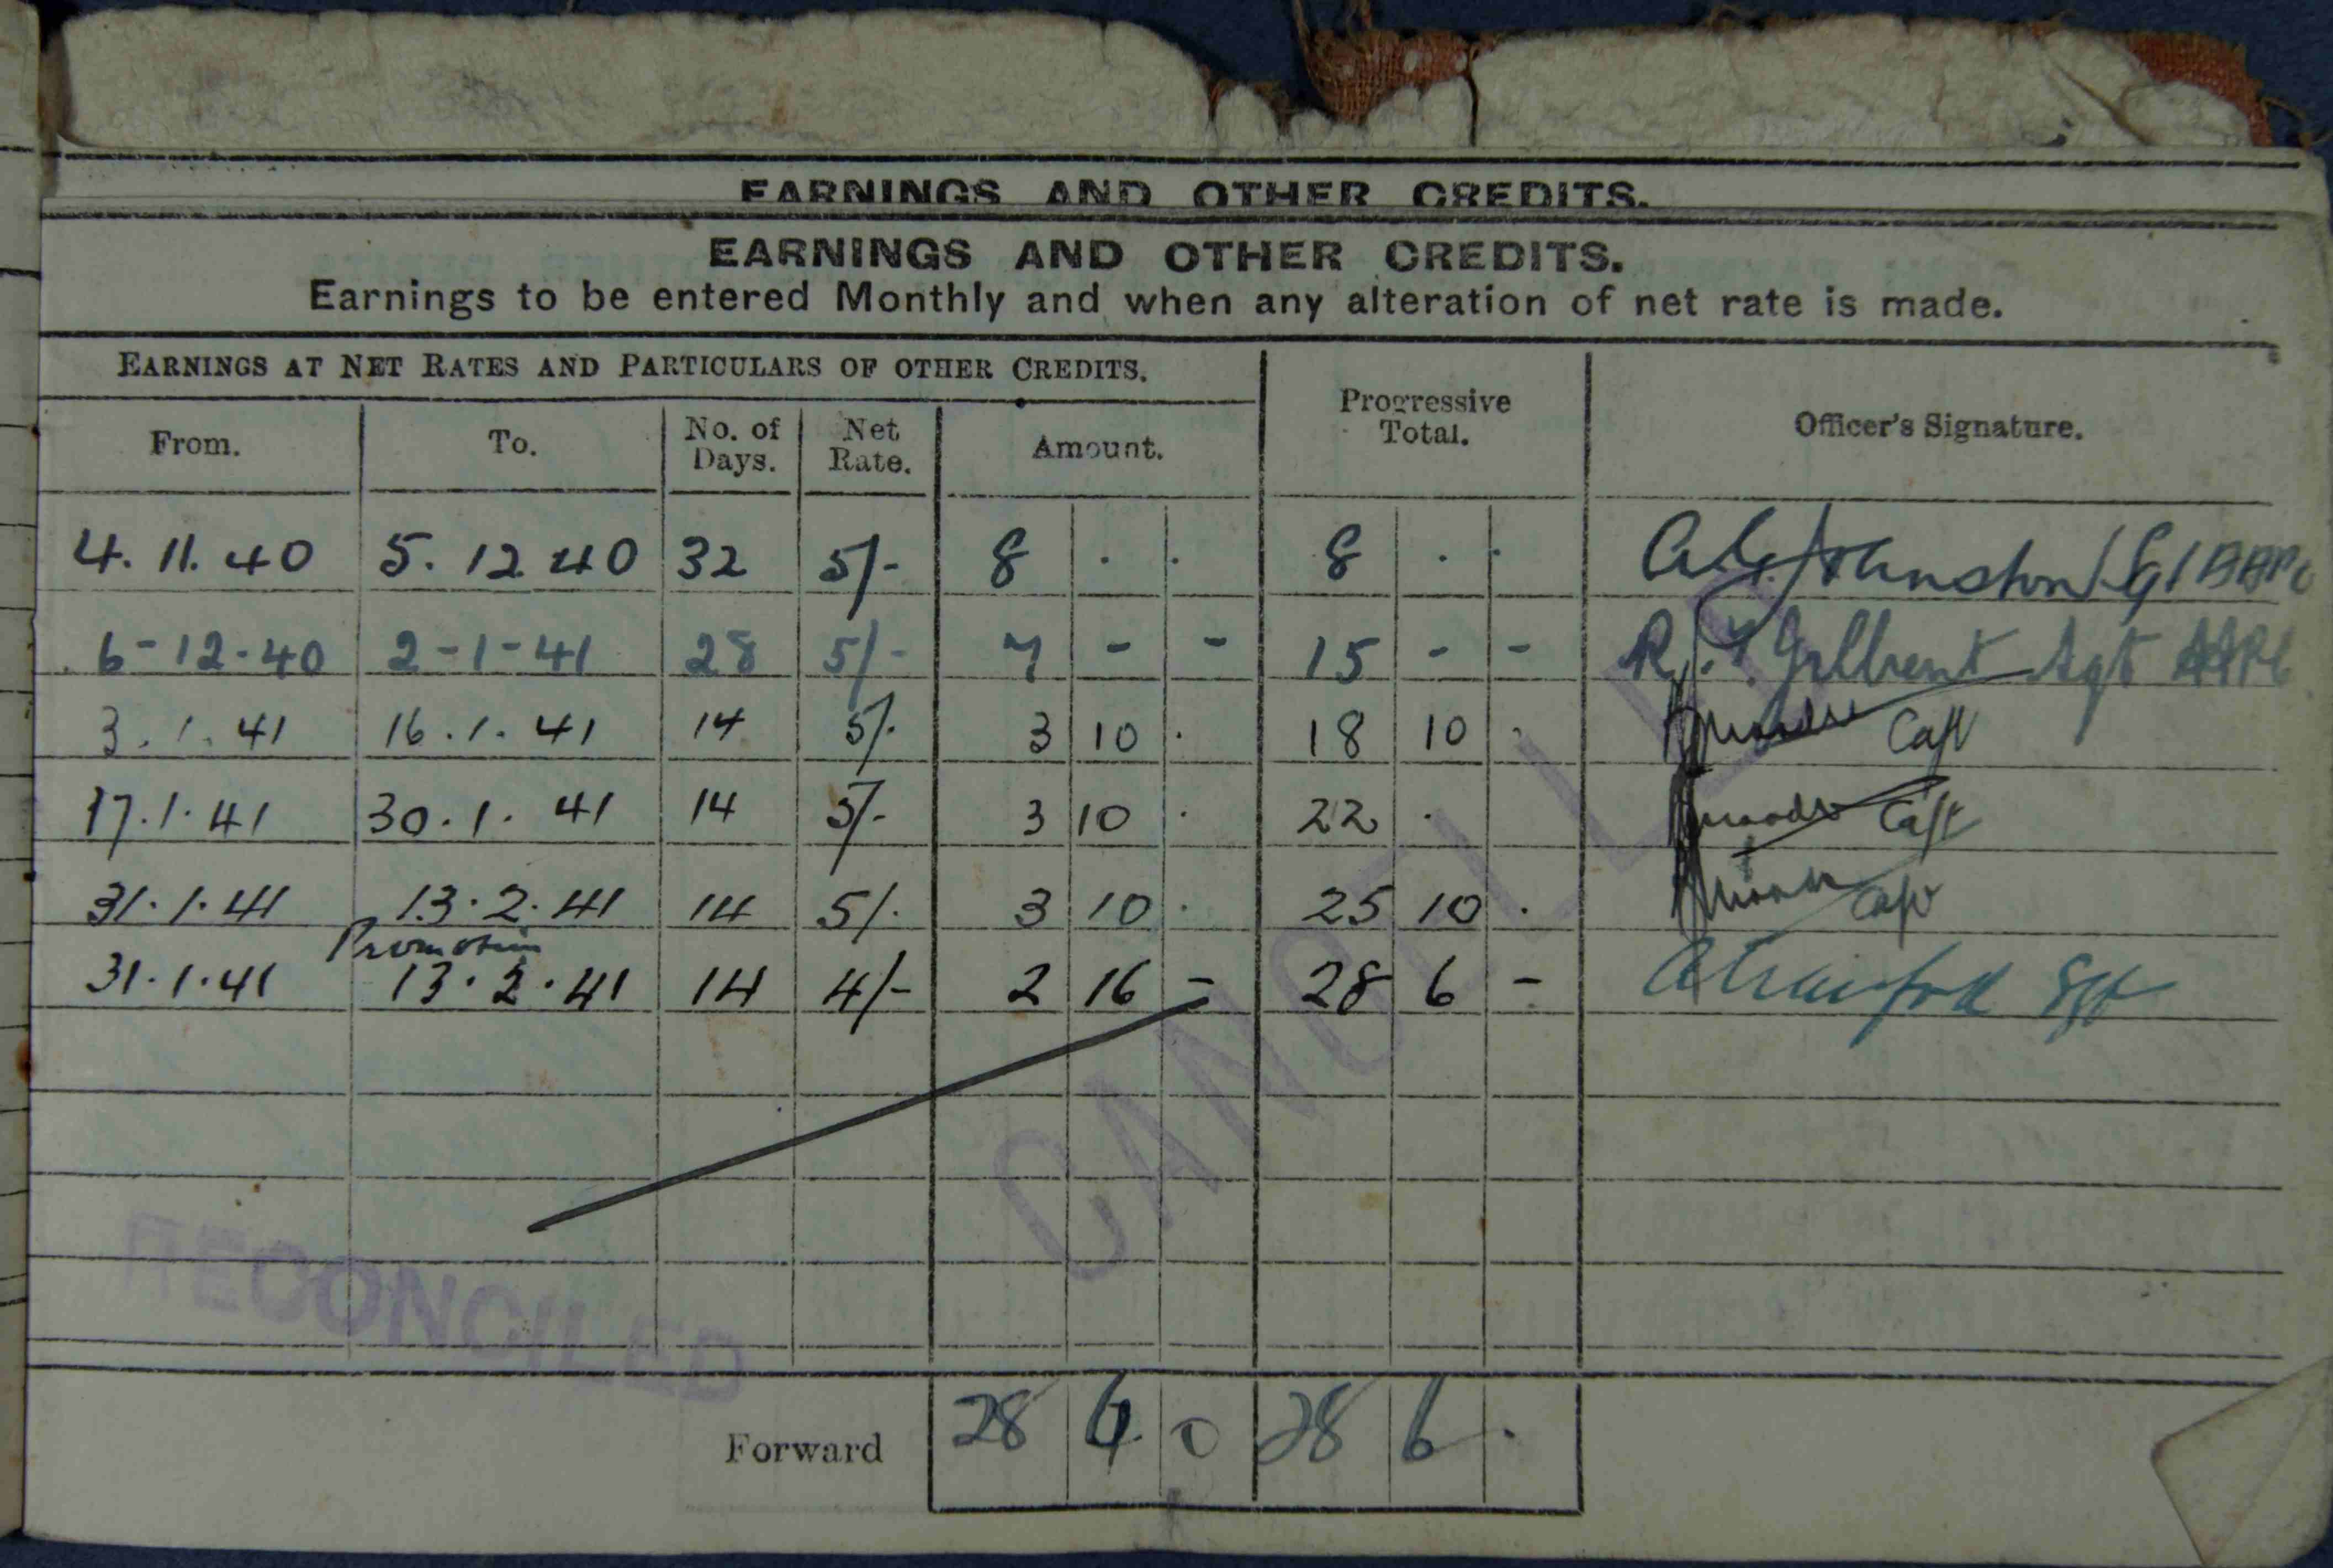 EARNINGS AND OTHER CREDITS.
EARNINGS AND OTHER CREDITS.
Earnings to be entered Monthly and when any alteration of net rate is made.
EARNINGS AT NET RATES AND PARTICULARS OF OTHER CREDITS.
From. To. No. of Days. Net Rate. Amount. Progressive Total. Officer's Signature.
4. 11. 40 5. 12. 40 32 5/- 8 . . 8 . . Johnston
6-12-40 2-1-41 28 5/- 7 - - 15 - - R. Sgt
3. 1. 41 16. 1. 41 14 5/. 3 10 . 18 10 . Capt
17. 1. 41 30. 1. 41 14 5/- 3 10 . 22 . Capt
31. 1. 41 13. 2. 41 14 5/. 3 10 . 25 10 . Capt
Promotion
31. 1. 41 13. 2. 41 14 4/- 2 16 - 28 6 - Sgt
CANCELLED
RECONCILED
Forward 28 6 0 28 6 .